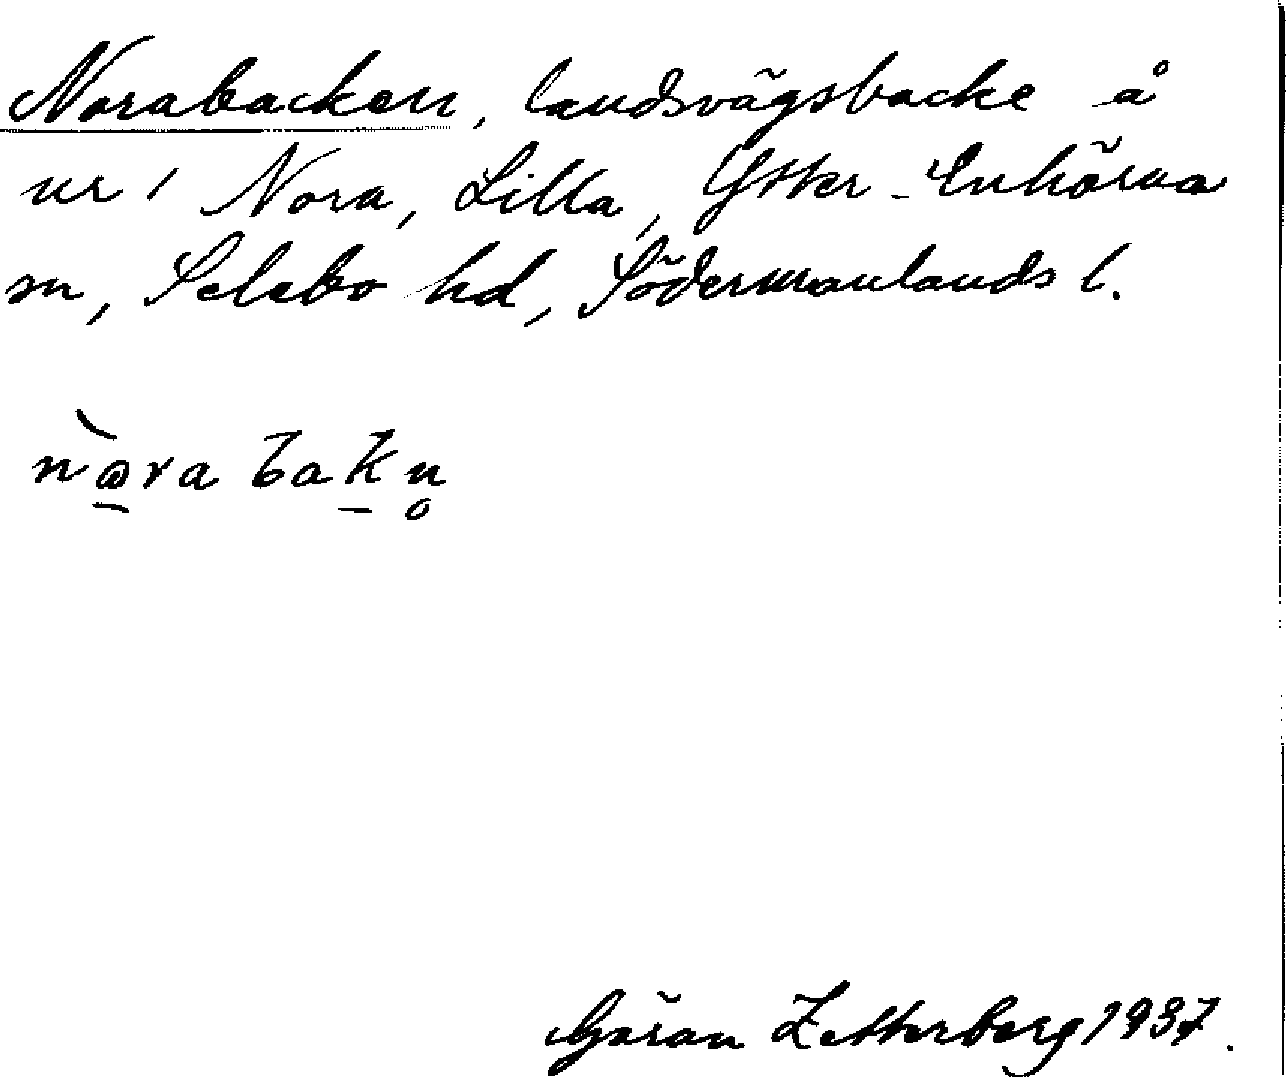 Norabacken, landsvägsbacke å
nr 1 Nora, Lilla, Ytter-Enhörna
sn, Selebo hd, Södermanlands l.
nòra bakn̥
Göran Zetterberg 1937.